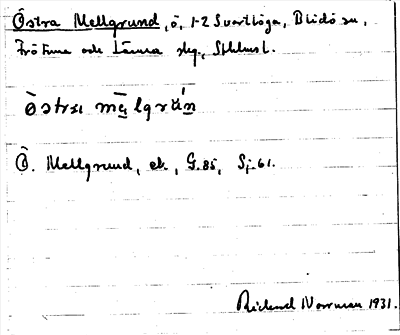 Östra Mellgrund, ö, 1-2 Svartlöga, Blidö sn,
Frötuna och Länna skg, Sthlms l.
östra mälgrun
Ö. Mellgrund, ek, G.85, Sj.61.
Rickard Norrman 1931.